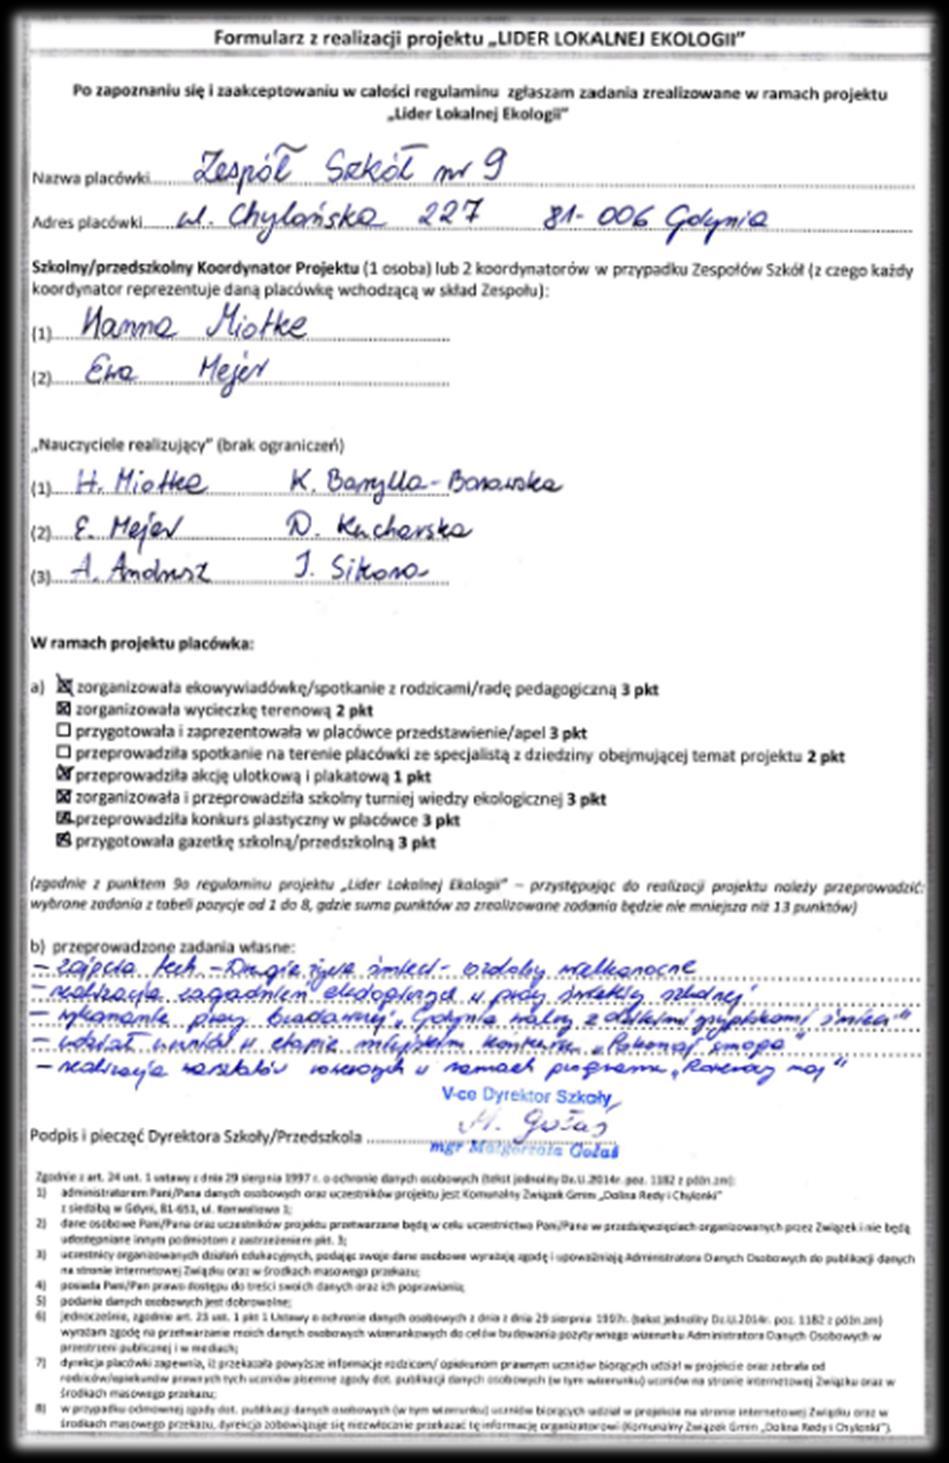 Formularz z realizacji projektu „LIDER LOKALNEJ EKOLOGII”
Po zapoznaniu się i zaakceptowaniu w całości regulaminu zgłaszam zadania zrealizowane w ramach projektu
„Lider Lokalnej Ekologii”
Nazwa placówki Zespół Szkół nr 9
Adres placówki ul. Chylońska 227 81-006 Gdynia
Szkolny/przedszkolny Koordynator Projektu (1 osoba) lub 2 koordynatorów w przypadku Zespołów Szkół (z czego każdy
koordynator reprezentuje daną placówkę wchodzącą w skład Zespołu):
(1) Hanna Miotke
(2) Ewa Mejer
„Nauczyciele realizujący” (brak ograniczeń)
(1) H. Miotke K. Barylla-Borowska
(2) E. Mejer D. Kucharska
(3) A. Andrusz J. Sikora
W ramach projektu placówka:
a) ☒ zorganizowała ekowywiadówkę/spotkanie z rodzicami/radę pedagogiczną 3 pkt
☒ zorganizowała wycieczkę terenową 2 pkt
☐ przygotowała i zaprezentowała w placówce przedstawienie/apel 3 pkt
☐ przeprowadziła spotkanie na terenie placówki ze specjalistą z dziedziny obejmującej temat projektu 2 pkt
☒ przeprowadziła akcję ulotkową i plakatową 1 pkt
☒ zorganizowała i przeprowadziła szkolny turniej wiedzy ekologicznej 3 pkt
☒ przeprowadziła konkurs plastyczny w placówce 3 pkt
☒ przygotowała gazetkę szkolną/przedszkolną 3 pkt
(zgodnie z punktem 9a regulaminu projektu „Lider Lokalnej Ekologii” – przystępując do realizacji projektu należy przeprowadzić:
wybrane zadania z tabeli pozycje od 1 do 8, gdzie suma punktów za zrealizowane zadania będzie nie mniejsza niż 13 punktów)
b) przeprowadzone zadania własne:
- zajęcia tech. - Drugie życie śmieci - ozdoby wielkanocne
- realizacja zagadnień ekologicznych w pracy świetlicy szkolnej
- wykonanie pracy badawczej „Gdynia walczy z dzikimi wysypiskami śmieci”
- udział uczniów w etapie miejskim konkursu „Pokonaj smoga”
- realizacja warsztatów rowerowych w ramach programu „Rowerowy maj”
V-ce Dyrektor Szkoły
M. Gołaś
Podpis i pieczęć Dyrektora Szkoły/Przedszkola
mgr Małgorzata Gołaś
Zgodnie z art. 24 ust. 1 ustawy z dnia 29 sierpnia 1997 r. o ochronie danych osobowych (tekst jednolity Dz.U.2014r. poz. 1182 z późn.zm):
1) administratorem Pani/Pana danych osobowych oraz uczestników projektu jest Komunalny Związek Gmin „Dolina Redy i Chylonki”
z siedzibą w Gdyni, 81-651, ul. Konwaliowa 1;
2) dane osobowe Pani/Pana oraz uczestników projektu przetwarzane będą w celu uczestnictwa Pani/Pana w przedsięwzięciach organizowanych przez Związek i nie będą
udostępniane innym podmiotom z zastrzeżeniem pkt. 3;
3) uczestnicy organizowanych działań edukacyjnych, podając swoje dane osobowe wyrażają zgodę i upoważniają Administratora Danych Osobowych do publikacji danych
na stronie internetowej Związku oraz w środkach masowego przekazu;
4) posiada Pani/Pan prawo dostępu do treści swoich danych oraz ich poprawiania;
5) podanie danych osobowych jest dobrowolne;
6) jednocześnie, zgodnie art. 23 ust. 1 pkt 1 Ustawy o ochronie danych osobowych z dnia z dnia 29 sierpnia 1997r. (tekst jednolity Dz.U.2014r. poz. 1182 z późn.zm)
wyrażam zgodę na przetwarzanie moich danych osobowych wizerunkowych do celów budowania pozytywnego wizerunku Administratora Danych Osobowych w
przestrzeni publicznej i w mediach;
7) dyrekcja placówki zapewnia, iż przekazała powyższe informacje rodzicom/ opiekunom prawnym uczniów biorących udział w projekcie oraz zebrała od
rodziców/opiekunów prawnych tych uczniów pisemne zgody dot. publikacji danych osobowych (w tym wizerunku) uczniów na stronie internetowej Związku oraz w
środkach masowego przekazu;
8) w przypadku odmownej zgody dot. publikacji danych osobowych (w tym wizerunku) uczniów biorących udział w projekcie na stronie internetowej Związku oraz w
środkach masowego przekazu, dyrekcja zobowiązuje się niezwłocznie przekazać tę informację organizatorowi (Komunalny Związek Gmin „Dolina Redy i Chylonki”).